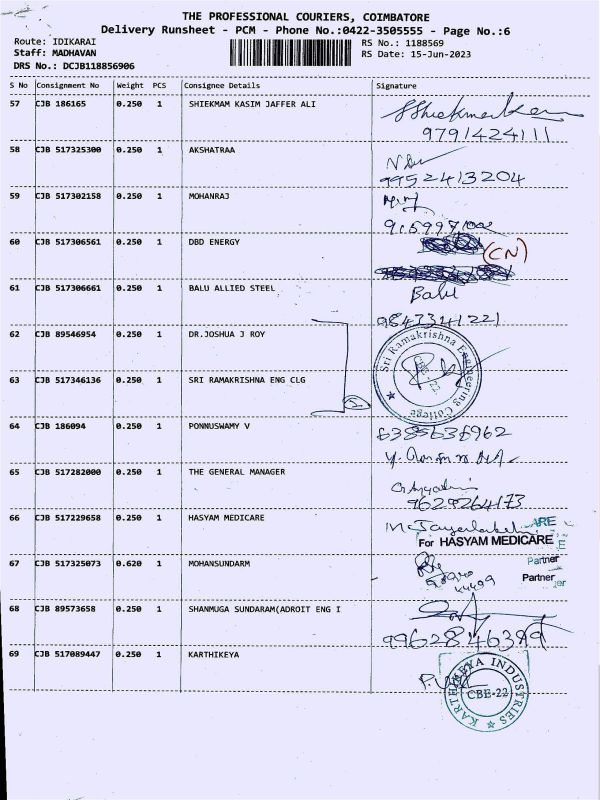 THE PROFESSIONAL COURIERS, COIMBATORE
Delivery Runsheet - PCM - Phone No.:0422-3505555 - Page No.:6
Route: IDIKARAI
RS No.: 1188569
Staff: MADHAVAN
RS Date: 15-Jun-2023
DRS No.: DCJB118856906
S No Consignment No Weight PCS Consignee Details Signature
57 CJB 186165 0.250 1 SHIEKMAM KASIM JAFFER ALI
9791424111
58 CJB 517325300 0.250 1 AKSHATRAA
9952413204
59 CJB 517302158 0.250 1 MOHANRAJ
60 CJB 517306561 0.250 1 DBD ENERGY
(CN)
61 CJB 517306661 0.250 1 BALU ALLIED STEEL Balu
9847341221
62 CJB 89546954 0.250 1 DR.JOSHUA J ROY
Sri Ramakrishna Engineering College
63 CJB 517346136 0.250 1 SRI RAMAKRISHNA ENG CLG
64 CJB 186094 0.250 1 PONNUSWAMY V
65 CJB 517282000 0.250 1 THE GENERAL MANAGER
9629264173
66 CJB 517229658 0.250 1 HASYAM MEDICARE
For HASYAM MEDICARE
67 CJB 517325073 0.620 1 MOHANSUNDARM
Partner
Partner
68 CJB 89573658 0.250 1 SHANMUGA SUNDARAM(ADROIT ENG I
69 CJB 517089447 0.250 1 KARTHIKEYA
KARTHIKEYA INDUSTRIES
CBE-22